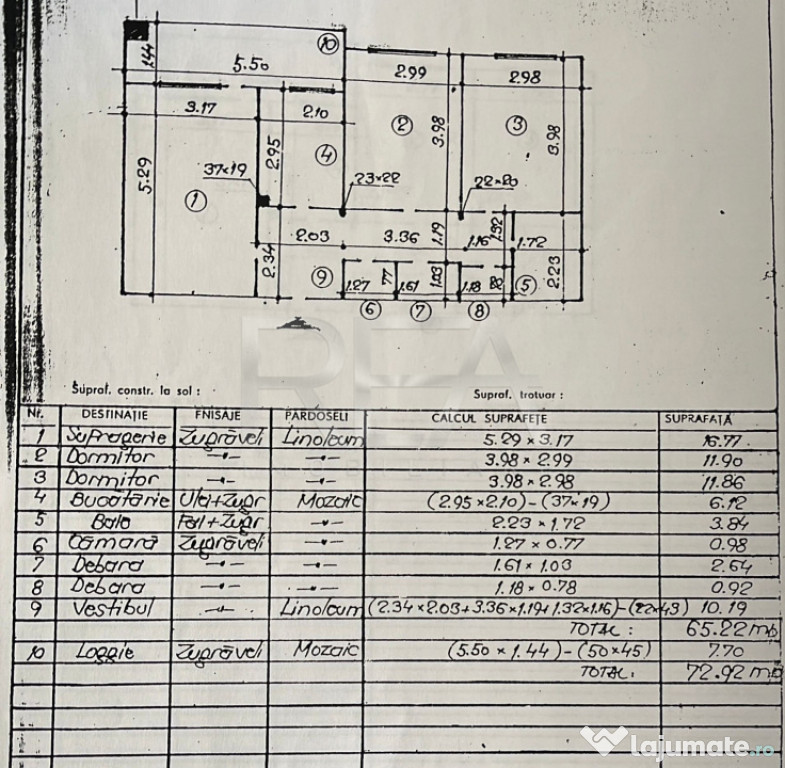 10
144
5.50
2.99
2.98
3.17
2.10
2
3.98
3
3.98
2.95
4
5.29
37x19
1
23x22
22x20
2.03
3.36
1.19
1.16
1.32
1.72
2.34
9
1.27
77
1.61
1.03
1.18
5
2.23
6
7
8
REA
Supraf. constr. la sol :
Supraf. trotuar :
Nr. DESTINAȚIE FNISAJE PARDOSELI CALCUL SUPRAFEȚE SUPRAFAȚĂ
1 Sufragerie Zugrăveli Linoleum 5.29 x 3.17 16.77
2 Dormitor —•— —•— 3.98 x 2.99 11.90
3 Dormitor —•— —•— 3.98 x 2.98 11.86
4 Bucătărie Ulei+Zugr Mozaic (2.95 x 2.10) - (37 x 19) 6.12
5 Baie Fai+Zugr —•— 2.23 x 1.72 3.84
6 Cămară Zugrăveli —•— 1.27 x 0.77 0.98
7 Debara —•— —•— 1.61 x 1.03 2.64
8 Debara —•— —•— 1.18 x 0.78 0.92
9 Vestibul —•— Linoleum (2.34 x 2.03 + 3.36 x 1.19 + 1.32 x 1.16) - (22 x 43) 10.19
TOTAL : 65.22 mp
10 Loggie Zugrăveli Mozaic (5.50 x 1.44) - (50 x 45) 7.70
TOTAL: 72.92 mp
lajumate.ro